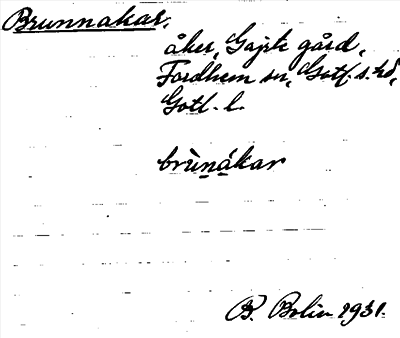 Brunnakar,
åker, Gajrte gård,
Fardhem sn, Gotl. s. hd,
Gotl. l.
brùnákar
B. Bolin 1931.